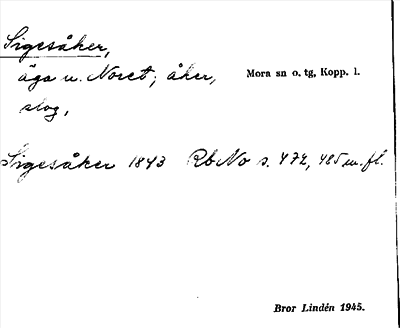 Sigesåker,
äga u. Noret; åker, Mora sn o. tg, Kopp. l.
slog,
Sigesåker 1843 RbNo s. 472, 485 m. fl.
Bror Lindén 1945.